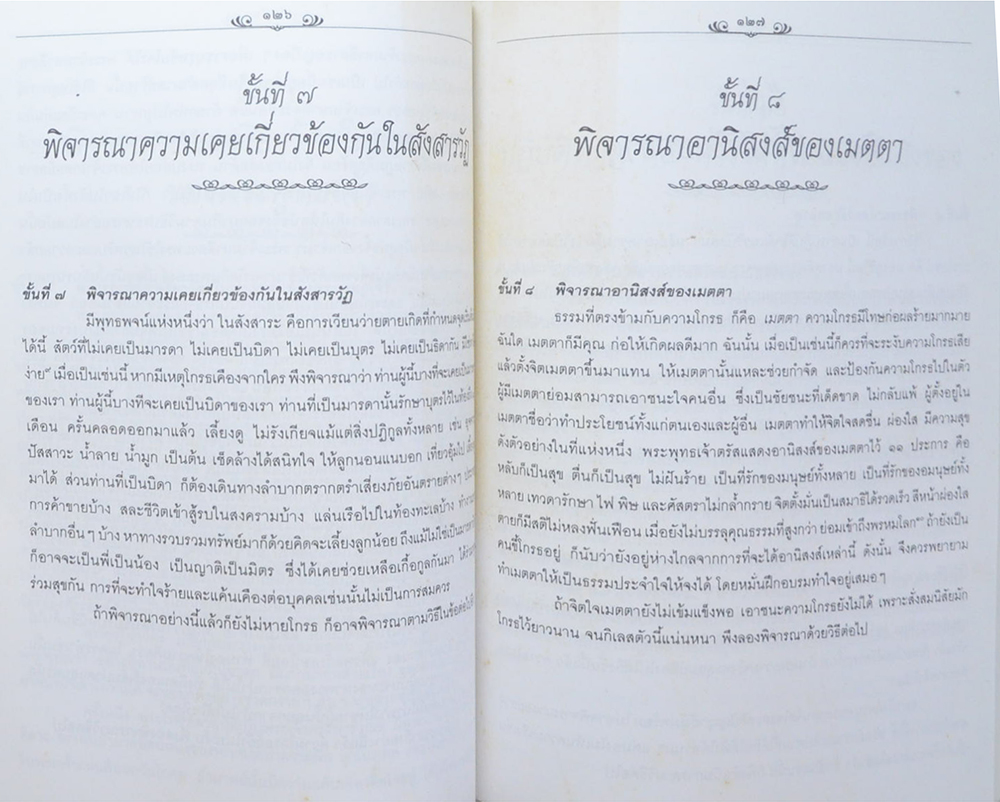 ๑๒๖
ขั้นที่ ๗
พิจารณาความเคยเกี่ยวข้องกันในสังสารวัฏ
ขั้นที่ ๗ พิจารณาความเคยเกี่ยวข้องกันในสังสารวัฏ
มีพุทธพจน์แห่งหนึ่งว่า ในสังสาระ คือการเวียนว่ายตายเกิดที่กำหนด
ได้นี้ สัตว์ที่ไม่เคยเป็นมารดา ไม่เคยเป็นบิดา ไม่เคยเป็นบุตร ไม่เคยเป็นธิดากัน
ง่าย" เมื่อเป็นเช่นนี้ หากมีเหตุโกรธเคืองจากใคร พึงพิจารณาว่า ท่านผู้นี้บางทีจะเคยเป็น
ของเรา ท่านผู้นี้บางทีจะเคยเป็นบิดาของเรา ท่านที่เป็นมารดานั้นรักษาบุตรไว้ในท้อง
เดือน ครั้นคลอดออกมาแล้ว เลี้ยงดู ไม่รังเกียจแม้แต่สิ่งปฏิกูลทั้งหลาย เช่น
ปัสสาวะ น้ำลาย น้ำมูก เป็นต้น เช็ดล้างได้สนิทใจ ให้ลูกนอนแนบอก เที่ยวอุ้มไป
มาได้ ส่วนท่านที่เป็นบิดา ก็ต้องเดินทางลำบากตรากตรำเสี่ยงภัยอันตรายต่างๆ
การค้าขายบ้าง สละชีวิตเข้าสู้รบในสงครามบ้าง แล่นเรือไปในท้องทะเลบ้าง
ลำบากอื่นๆ บ้าง หาทางรวบรวมทรัพย์มาก็ด้วยคิดจะเลี้ยงลูกน้อย ถึงแม้ไม่ใช่เป็น
ก็อาจจะเป็นพี่เป็นน้อง เป็นญาติเป็นมิตร ซึ่งได้เคยช่วยเหลือเกื้อกูลกันมา
ร่วมสุขกัน การที่จะทำใจร้ายและแค้นเคืองต่อบุคคลเช่นนั้นไม่เป็นการสมควร
ถ้าพิจารณาอย่างนี้แล้วก็ยังไม่หายโกรธ ก็อาจพิจารณาตามวิธีใน
๑๒๗
ขั้นที่ ๘
พิจารณาอานิสงส์ของเมตตา
ขั้นที่ ๘ พิจารณาอานิสงส์ของเมตตา
ธรรมที่ตรงข้ามกับความโกรธ ก็คือ เมตตา ความโกรธมีโทษก่อผลร้ายมากมาย
ฉันใด เมตตาก็มีคุณ ก่อให้เกิดผลดีมาก ฉันนั้น เมื่อเป็นเช่นนี้ก็ควรที่จะระงับความโกรธเสีย
แล้วตั้งจิตเมตตาขึ้นมาแทน ให้เมตตานั้นแหละช่วยกำจัด และป้องกันความโกรธไปในตัว
ผู้มีเมตตาย่อมสามารถเอาชนะใจคนอื่น ซึ่งเป็นชัยชนะที่เด็ดขาด ไม่กลับแพ้ ผู้ตั้งอยู่ใน
เมตตาชื่อว่าทำประโยชน์ทั้งแก่ตนเองและผู้อื่น เมตตาทำให้จิตใจสดชื่น ผ่องใส มีความสุข
ดังตัวอย่างในที่แห่งหนึ่ง พระพุทธเจ้าตรัสแสดงอานิสงส์ของเมตตาไว้ ๑๑ ประการ คือ
หลับก็เป็นสุข ตื่นก็เป็นสุข ไม่ฝันร้าย เป็นที่รักของมนุษย์ทั้งหลาย เป็นที่รักของอมนุษย์ทั้ง
หลาย เทวดารักษา ไฟ พิษ และศัสตราไม่กล้ำกราย จิตตั้งมั่นเป็นสมาธิได้รวดเร็ว สีหน้าผ่องใส
ตายก็มีสติไม่หลงฟั่นเฟือน เมื่อยังไม่บรรลุคุณธรรมที่สูงกว่า ย่อมเข้าถึงพรหมโลก" ถ้ายังเป็น
คนขี้โกรธอยู่ ก็นับว่ายังอยู่ห่างไกลจากการที่จะได้อานิสงส์เหล่านี้ ดังนั้น จึงควรพยายาม
ทำเมตตาให้เป็นธรรมประจำใจให้จงได้ โดยหมั่นฝึกอบรมทำใจอยู่เสมอๆ
ถ้าจิตใจเมตตายังไม่เข้มแข็งพอ เอาชนะความโกรธยังไม่ได้ เพราะสั่งสมนิสัยมัก
โกรธไว้ยาวนาน จนกิเลสตัวนี้แน่นหนา พึงลองพิจารณาด้วยวิธีต่อไป